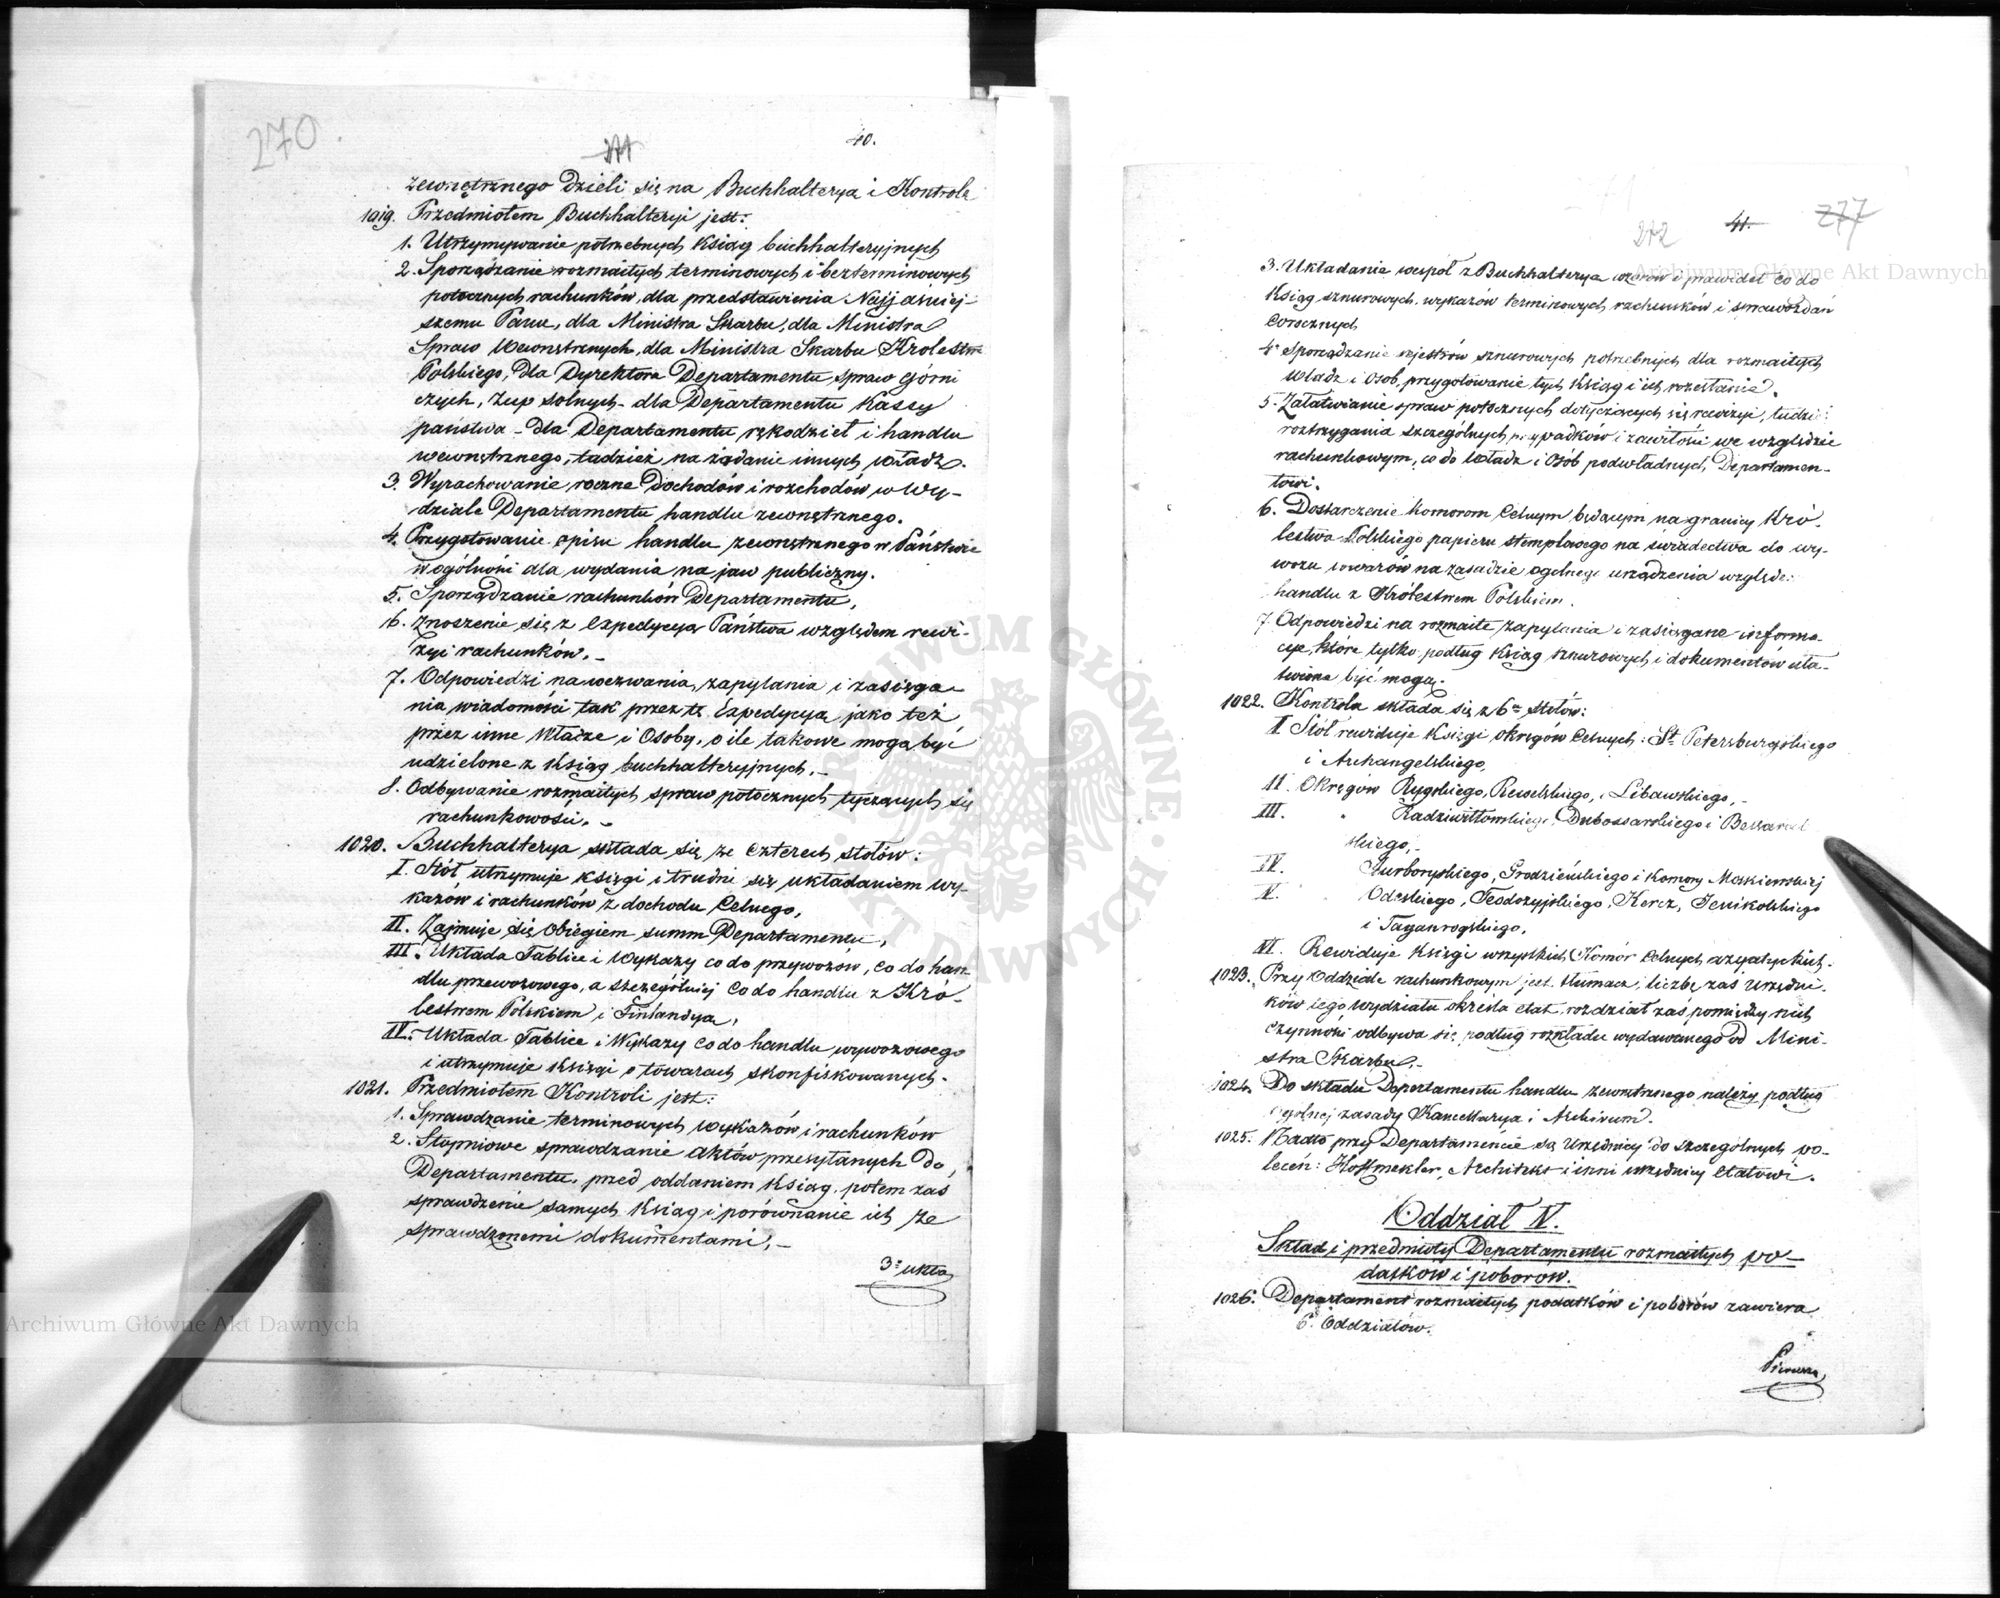 270.
271
40.
zewnętrznego dzieli się na Buchhalteryą i Kontrolę
1019. Przedmiotem Buchhalteryi jest:
1. Utrzymywanie potrzebnych Ksiąg buchhalteryjnych
2. Sporządzanie rozmaitych terminowych i bezterminowych
potocznych rachunków, dla przedstawienia Najjaśniej
szemu Panu, dla Ministra Skarbu, dla Ministra
Spraw Wewnętrznych, dla Ministra Skarbu Królestwa
Polskiego, dla Dyrektora Departamentu spraw Górni
czych, Żup Solnych - dla Departamentu Kassy
państwa - dla Departamentu rękodzieł i handlu
wewnętrznego, tudzież na żądanie innych władz.
3. Wyrachowanie roczne Dochodów i rozchodów w Wy-
dziale Departamentu handlu zewnętrznego.
4. Przygotowanie opisu handlu zewnętrznego w Państwie
w ogólności dla wydania na jaw publiczny.
5. Sporządzanie rachunków Departamentu,
6. Znoszenie się z Expedycyą Państwa względem rewi-
zyi rachunków. -
7. Odpowiedzi na wezwania, zapytania i zasięga-
nia wiadomości tak przez tę Expedycyą jako też
przez inne Władze i Osoby, o ile takowe mogą być
udzielone z Ksiąg buchhalteryjnych. -
8. Odbywanie rozmaitych spraw potocznych tyczących się
rachunkowości. -
1020. Buchhalterya składa się ze czterech stołów:
I. Stół utrzymuje księgi i trudni się układaniem wy-
kazów i rachunków z dochodu Celnego,
II. Zajmuje się obiegiem summ Departamentu,
III. Układa Tablice i Wykazy co do przywozów, co do han-
dlu przewozowego, a szczególniej co do handlu z Kró-
lestwem Polskiem i Finlandyą,
IV. Układa Tablice i Wykazy co do handlu wywozowego
i utrzymuje Księgi o towarach skonfiskowanych.
1021. Przedmiotem Kontroli jest:
1. Sprawdzanie terminowych Wykazów i rachunków
2. Stopniowe sprawdzanie aktów przesyłanych do
Departamentu, przed oddaniem Ksiąg, potem zaś
sprawdzenie samych Ksiąg i porównanie ich ze
sprawdzonemi dokumentami, -
3= ukła
272 41. 277
3. Układanie wespół z Buchhalteryą wzorów i prawideł co do
Ksiąg sznurowych, wykazów terminowych, rachunków i sprawozdań
Corocznych
4. Sporządzanie rejestrów sznurowych potrzebnych dla rozmaitych
Władz i Osób, przygotowanie tych Ksiąg i ich rozesłanie.
5. Załatwianie spraw potocznych dotyczących się rewizyi, tudzież
roztrzygania szczególnych przypadków i zawiłości we względzie
rachunkowym, co do Władz i Osób podwładnych Departamen-
towi.
6. Dostarczenie Komorom Celnym będącym na granicy Kró-
lestwa Polskiego papieru stemplowego na świadectwa do wy-
wozu towarów na zasadzie ogólnego urządzenia względem
handlu z Królestwem Polskiem.
7. Odpowiedzi na rozmaite zapytania i zasięgane informa-
cye, które tylko podług Ksiąg sznurowych i dokumentów uła-
twione być mogą.
1022. Kontrola składa się z 6ciu stołów:
I Stół rewiduje Księgi okręgów Celnych: St Petersburgskiego
i Archangelskiego,
II. Okręgów Rygskiego, Rewelskiego, i Libawskiego, -
III. " Radziwiłłowskiego, Dubossarskiego i Bessarab
skiego, -
IV. Jurborgskiego, Grodzieńskiego i Komory Moskiewskiej
V. Odeskiego, Teodozyjskiego, Kercz, Jenikolskiego
i Taganrogskiego,
VI. Rewiduje Księgi wszystkich Komór Celnych azyatyckich.
1023. Przy Oddziale rachunkowym jest tłumacz, liczbę zaś Urzędni-
ków tego wydziału określa etat, rozdział zaś pomiędzy nich
czynności odbywa się podług rozkładu wydawanego od Mini-
stra Skarbu. -
1024. Do składu Departamentu handlu zewnętrznego należy podług
ogólnej zasady Kancellarya i Archiwum.
1025. Nadto przy Departamencie są Urzędnicy do szczególnych po-
leceń: Hoffmekler, Architekt i inni urzędnicy etatowi.
Oddział IV.
Skład i przedmioty Departamentu rozmaitych po-
datków i poborów.
1026. Departament rozmaitych podatków i poborów zawiera
6. Oddziałów.
Pierwszy
Archiwum Główne Akt Dawnych
Archiwum Główne Akt Dawnych
ARCHIWUM GŁÓWNE AKT DAWNYCH